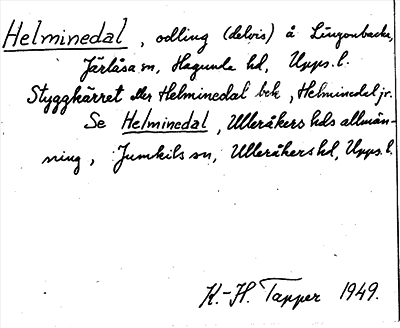 Helminedal, odling (delvis) å Lingonbacke,
Järlåsa sn, Hagunda hd, Upps. l.
Styggkärret eller Helminedal bek, Helminedal jr.
Se Helminedal, Ulleråkers hds allmän-
ning, Jumkils sn, Ulleråkers hd, Upps. l.
K.-H. Tapper 1949.